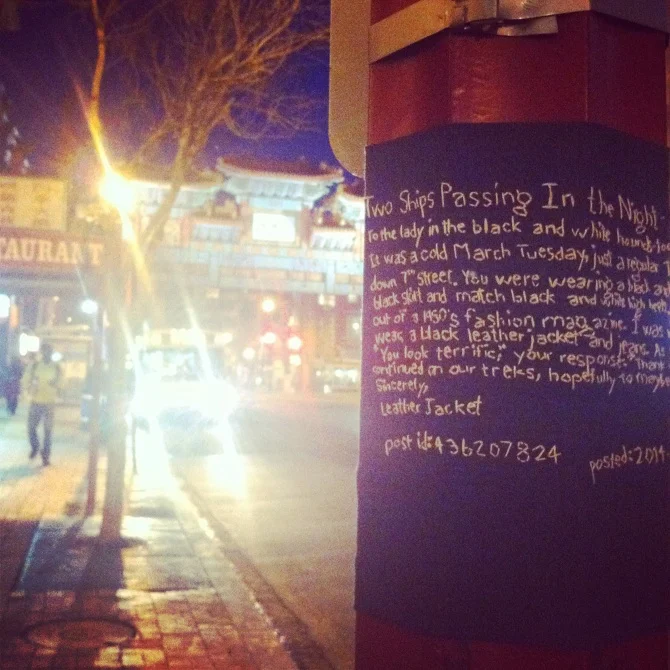 TAURANT
Two Ships Passing In the Night
To the lady in the black and white hounds
It was a cold March Tuesday, just a regular T
down 7th street. You were wearing a black and
black skirt and match black and white high heels
out of a 1950's fashion magazine. I was
wear a black leather jacket and jeans. As
"You look terrific", your response: "Thank
continued on our treks, hopefully to meet
Sincerely,
Leather Jacket
post id: 436207824
posted: 2014